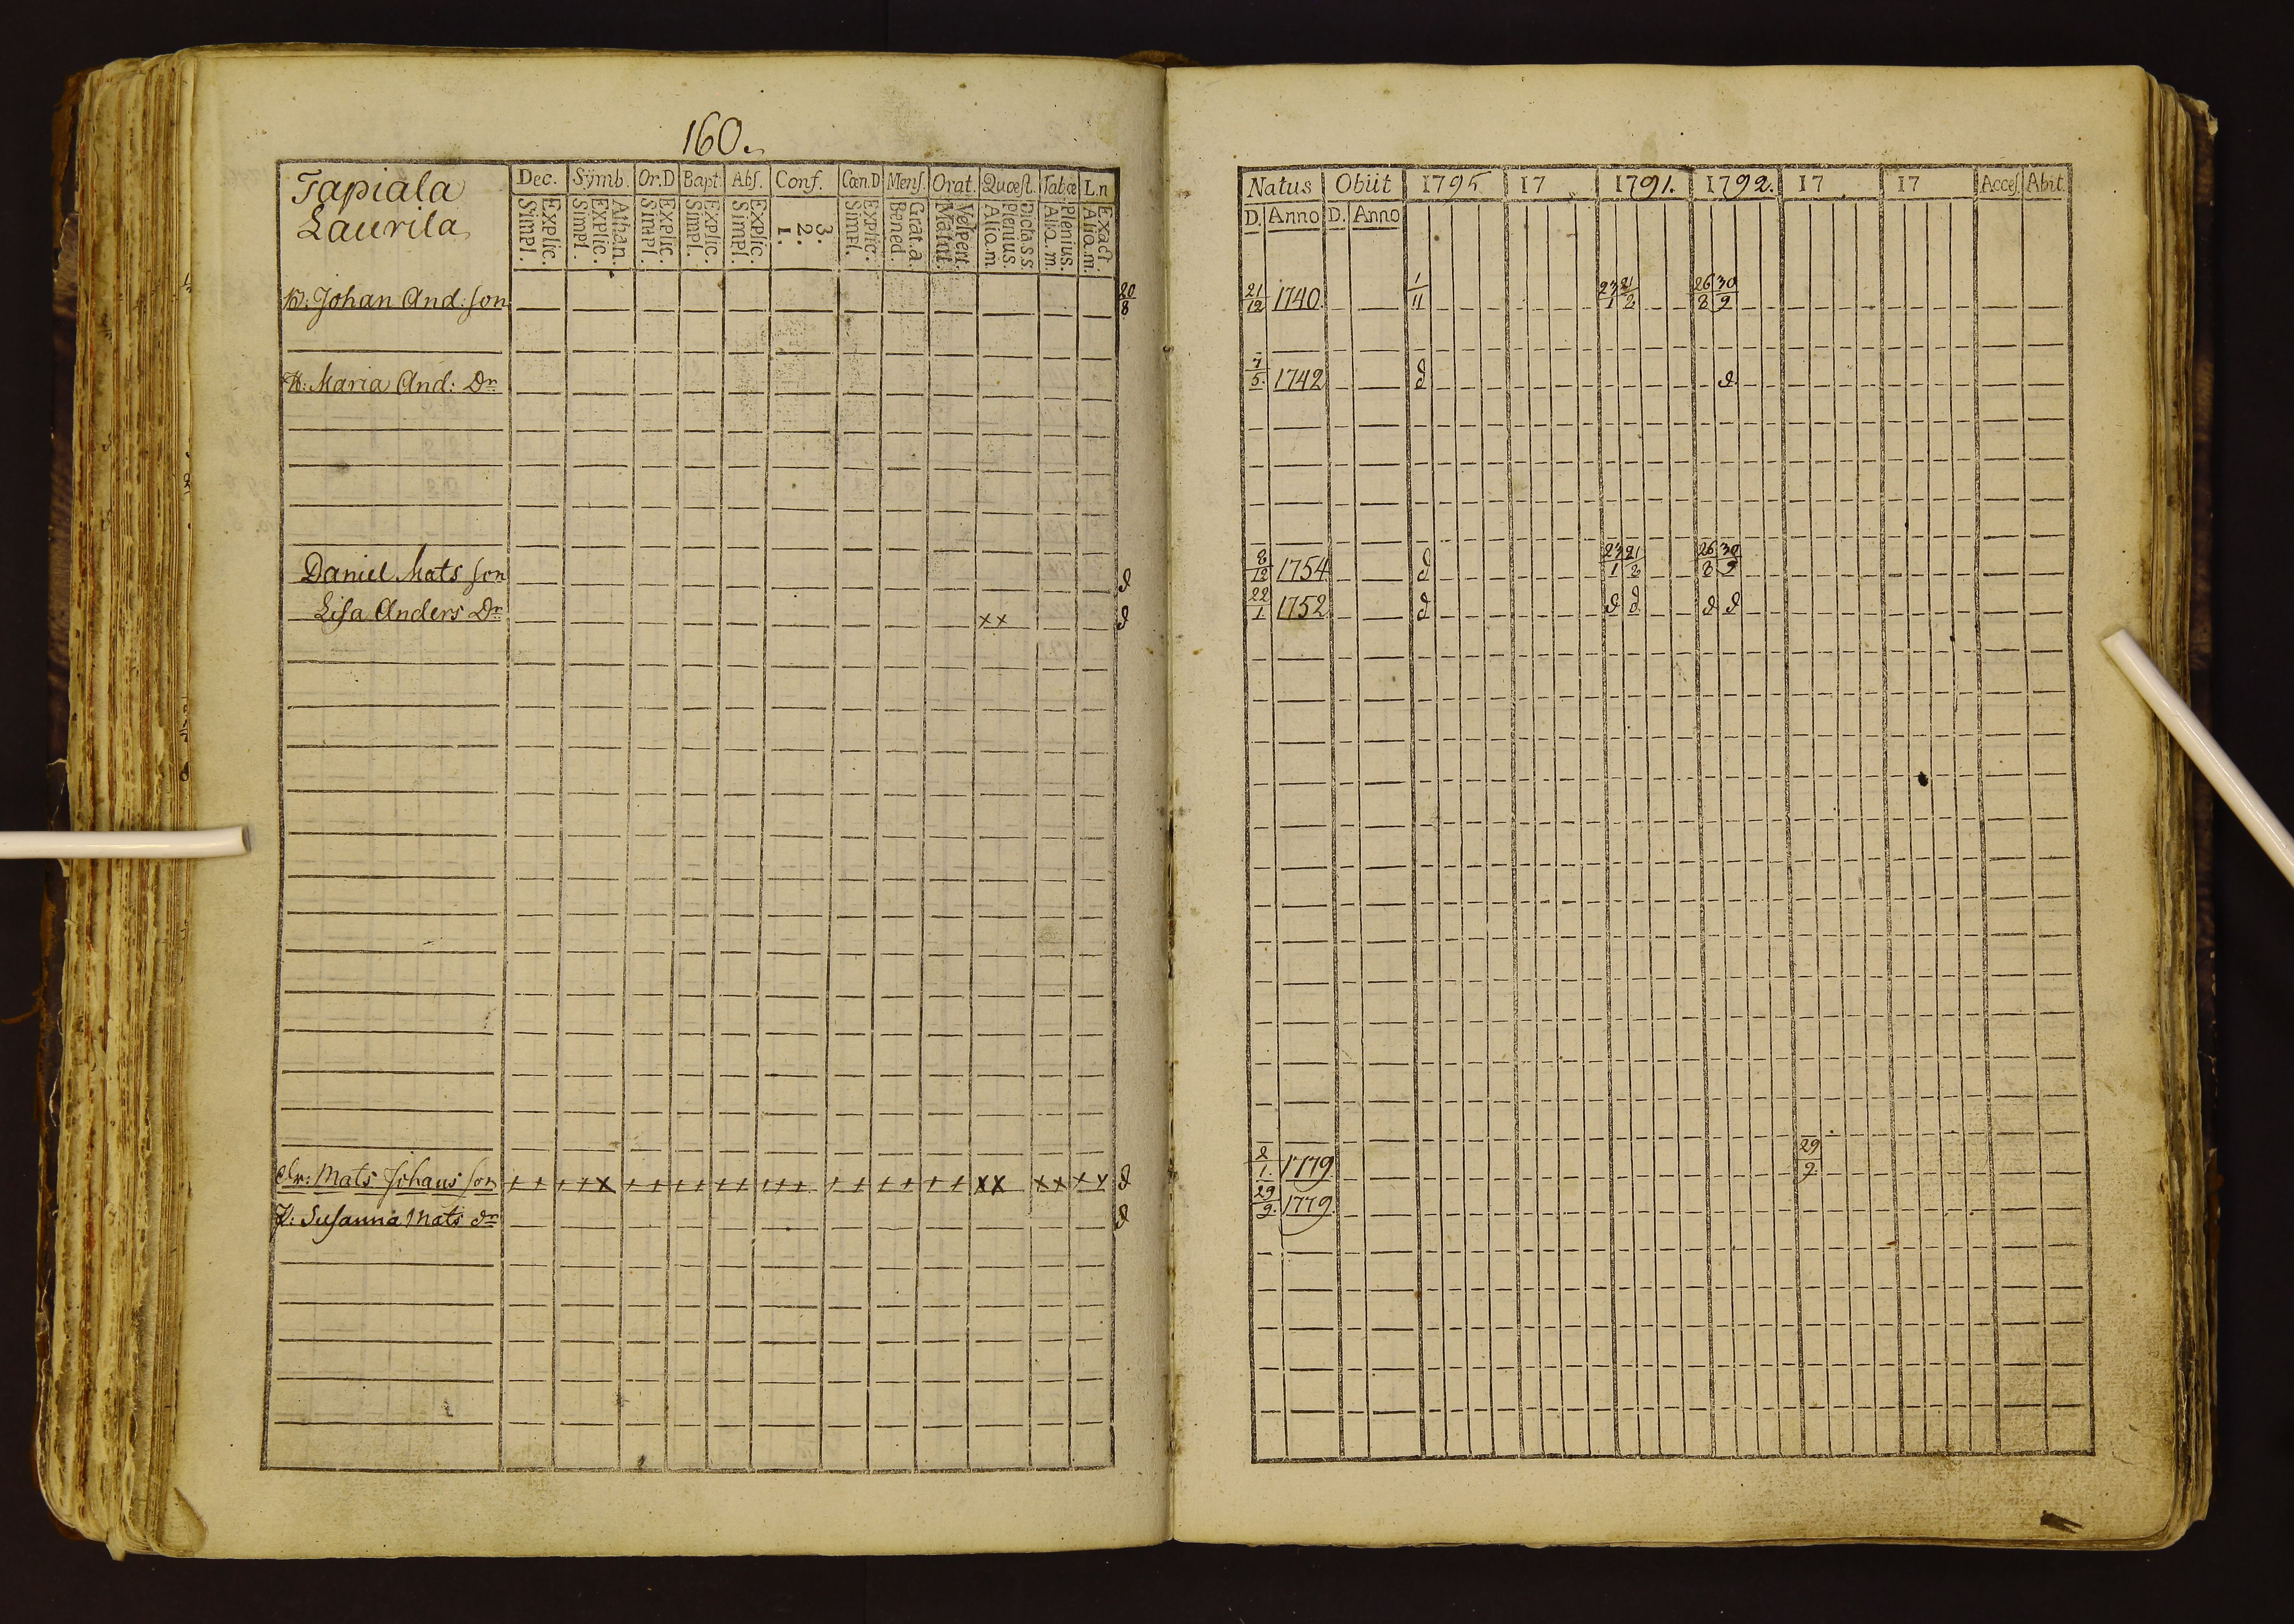 160.
Tapiala
Laurila
Dec. Symb. Or.D Bapt. Abs. Conf. Cœn.D Mens. Orat. Quœst. Tabœ L.n
Explic. Simpl. Athan. Explic. Simpl. Explic. Simpl. Explic. Simpl. Explic. Simpl. 3. 2. 1. Explic. Simpl. Grat.a. Bened. Vespert. Matut. Dicta s s Plenius. Aliq.m Plenius. Aliq.m. Exact. Aliq.m.
Johan And:son 20/8
H: Maria And: Dr
Daniel Mats son d
Lisa Anders Dr xx d
Mats Johans son + + + + x + + + + + + + + + + + + + + + xx xx x x d
Susanna Mats dr d
Natus Obiit 1795 17 1791. 1792. 17 17 Acces. Abit.
D. Anno D. Anno
21/12 1740. 1/11 23/1 21/2 26/8 30/9
7/5. 1742 d d.
8/12 1754 d 23/1 21/2 26/8 30/9
22/1. 1752 d d d d d
2/1. 1779 29/9.
29/9. 1779.